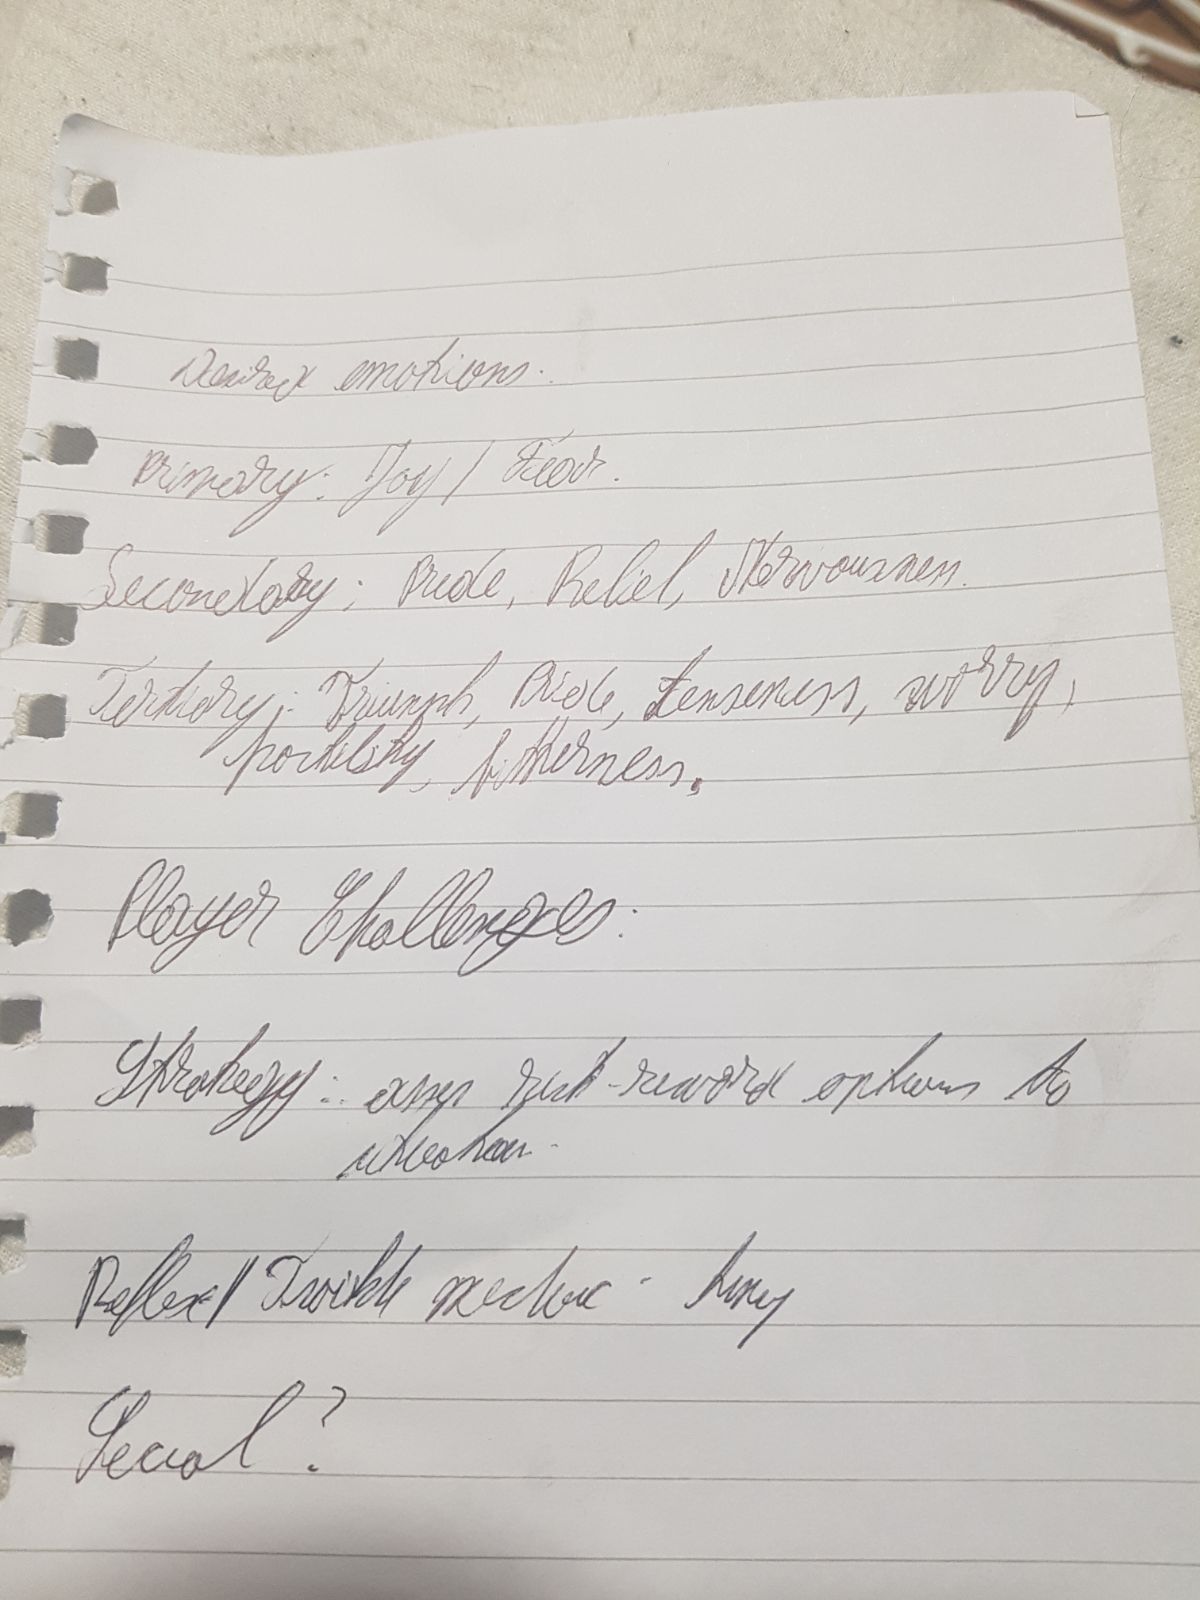 Desired emotions.
Primary: Joy / Fear.
Secondary: Pride, Relief, Nervousness.
Tertiary: Triumph, Pride, tenseness, worry,
hostility, bitterness.
Player Challenges:
Strategy: asses risk-reward options to
situation.
Reflex// Twitch mechanic - timing
Social?